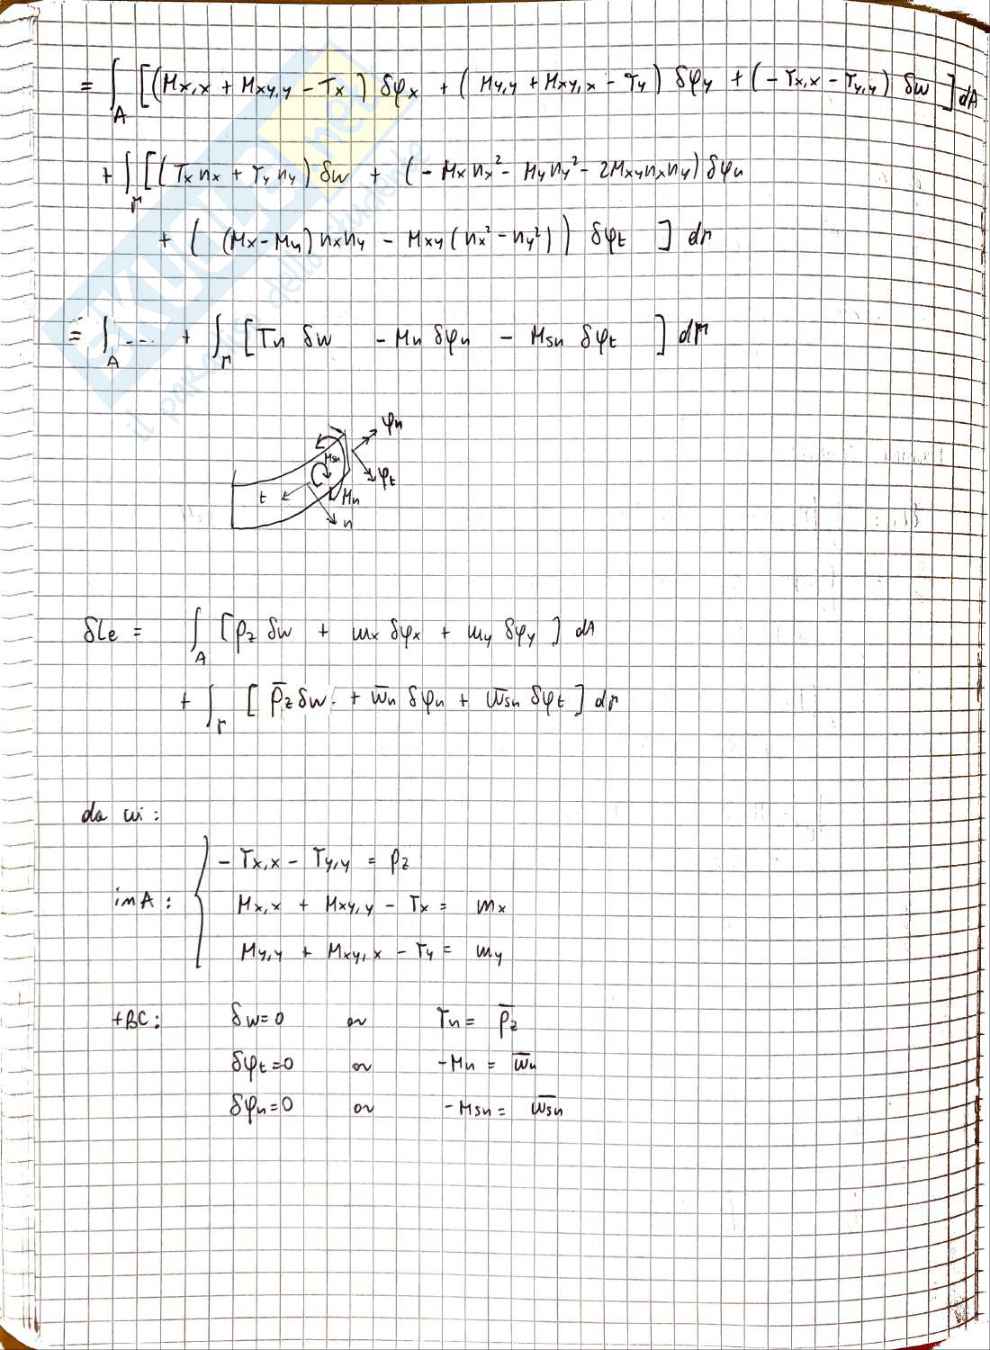 = ∫_A [(Mx,x + Mxy,y - Tx) δφx + (My,y + Mxy,x - Ty) δφy + (-Tx,x - Ty,y) δw] dA
+ ∫_Γ [(Tx nx + Ty ny) δw + (-Mx nx² - My ny² - 2Mxy nx ny) δφn
+ ((Mx - My) nx ny - Mxy (nx² - ny²)) δφt ] dΓ
= ∫_A ... + ∫_Γ [Tn δw - Mn δφn - Msn δφt ] dΓ
φn
Msn
φt
t
Mn
n
δLe = ∫_A [pz δw + mx δφx + my δφy ] dA
+ ∫_Γ [ p̄z δw + m̄n δφn + m̄sn δφt ] dΓ
da cui :
- Tx,x - Ty,y = pz
in A : Mx,x + Mxy,y - Tx = mx
My,y + Mxy,x - Ty = my
+BC : δw=0 or Tn = p̄z
δφt=0 or -Mn = m̄n
δφn=0 or -Msn = m̄sn